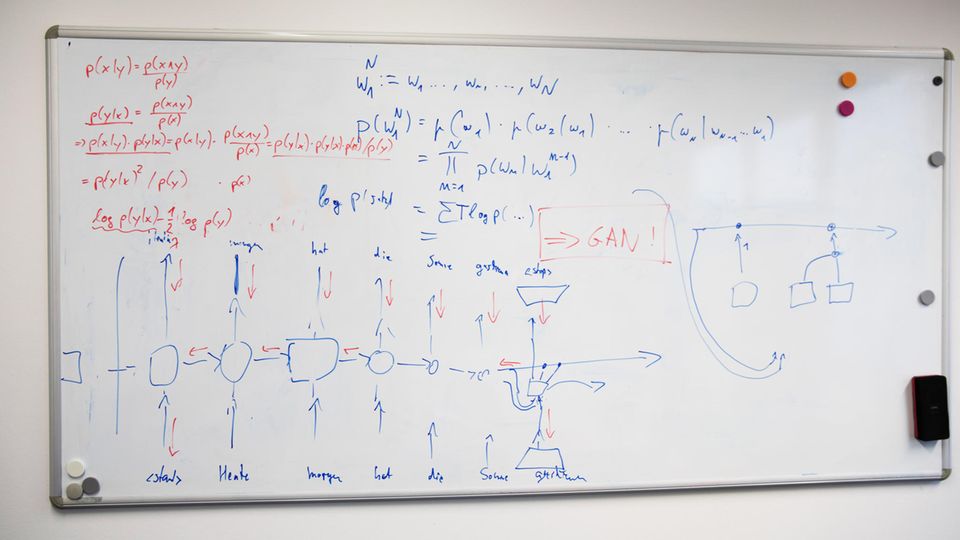 p(x|y) = p(x∧y) / p(y)
p(y|x) = p(x∧y) / p(x)
⇒ p(x|y) · p(y|x) = p(x|y) · p(x∧y) / p(x) = p(y|x) · p(y|x) · p(x) / p(y)
= p(y|x)² / p(y) · p(x)
log p(y|x) - 1/2 log p(y)
w₁ᴺ := w₁ ..., wₙ, ..., w_N
p(w₁ᴺ) = p(w₁) · p(w₂|w₁) · ... · p(w_N | w_N-1 ... w₁)
= ∏ₙ₌₁ᴺ p(wₙ | w₁ⁿ⁻¹)
log p(satz) = ∑ log p(...)
=
⇒ GAN !
1
morgen hat die Sonne <stop>
<start> Heute morgen hat die Sonne